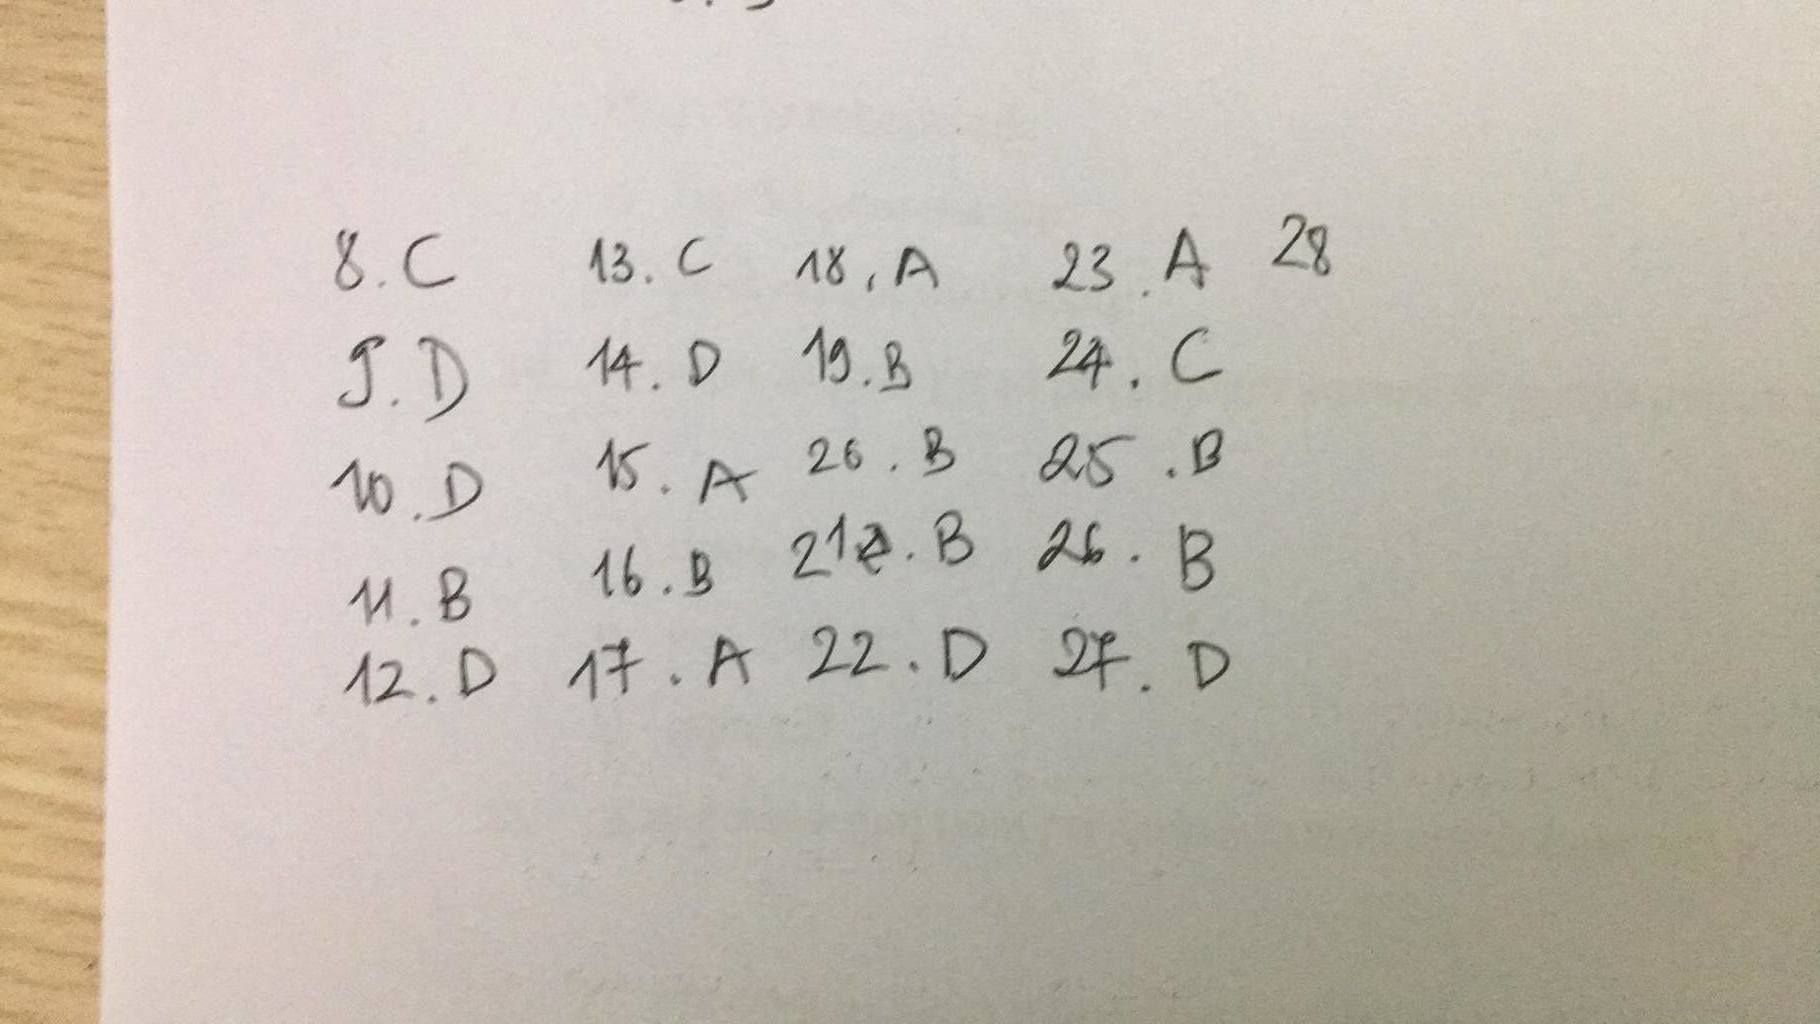 8. C 13. C 18. A 23. A 28
9. D 14. D 19. B 24. C
10. D 15. A 20. B 25. B
11. B 16. B 21. B 26. B
12. D 17. A 22. D 27. D